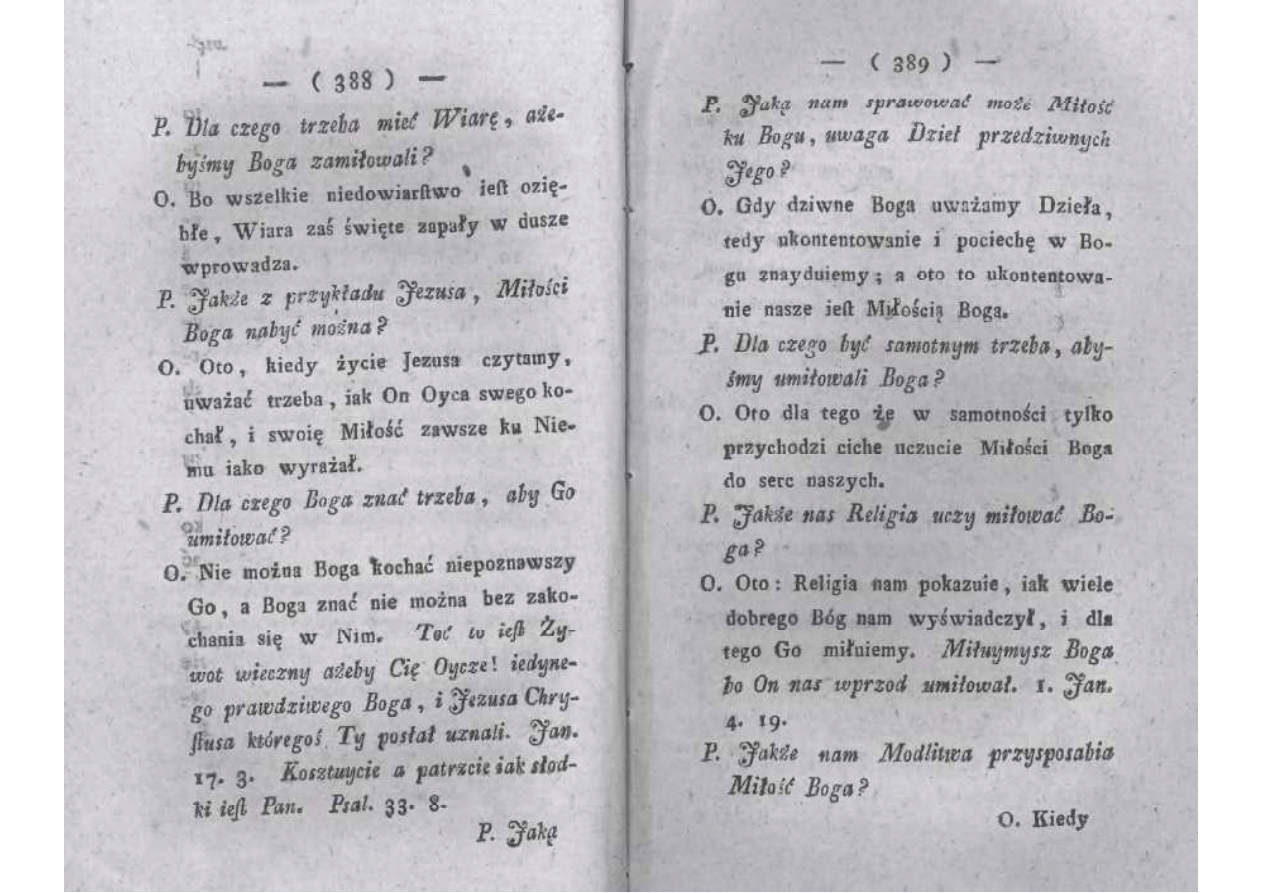 — ( 388 ) —
P. Dla czego trzeba mieć Wiarę, aże-
byśmy Boga zamiłowali?
O. Bo wszelkie niedowiarſtwo ieſt ozię-
błe, Wiara zaś święte zapały w dusze
wprowadza.
P. Jakże z przykładu Jezusa, Miłości
Boga nabyć można?
O. Oto, kiedy życie Jezusa czytamy,
uważać trzeba, iak On Oyca swego ko-
chał, i swoię Miłość zawsze ku Nie-
mu iako wyrażał.
P. Dla czego Boga znać trzeba, aby Go
umiłować?
O. Nie można Boga kochać niepoznawszy
Go, a Boga znać nie można bez zako-
chania się w Nim. Toć to ieſt Ży-
wot wieczny ażeby Cię Oycze! iedyne-
go prawdziwego Boga, i Jezusa Chry-
ſtusa któregoś Ty posłał uznali. Jan.
17. 3. Kosztuycie a patrzcie iak słod-
ki ieſt Pan. Psal. 33. 8.
P. Jaką
— ( 389 ) —
P. Jaką nam sprawować może Miłość
ku Bogu, uwaga Dzieł przedziwnych
Jego?
O. Gdy dziwne Boga uważamy Dzieła,
tedy ukontentowanie i pociechę w Bo-
gu znayduiemy; a oto to ukontentowa-
nie nasze ieſt Miłością Boga.
P. Dla czego być samotnym trzeba, aby-
śmy umiłowali Boga?
O. Oto dla tego że w samotności tylko
przychodzi ciche uczucie Miłości Boga
do serc naszych.
P. Jakże nas Religia uczy miłować Bo-
ga?
O. Oto: Religia nam pokazuie, iak wiele
dobrego Bóg nam wyświadczył, i dla
tego Go miłuiemy. Miłuymysz Boga
bo On nas wprzod umiłował. 1. Jan.
4. 19.
P. Jakże nam Modlitwa przysposabia
Miłość Boga?
O. Kiedy